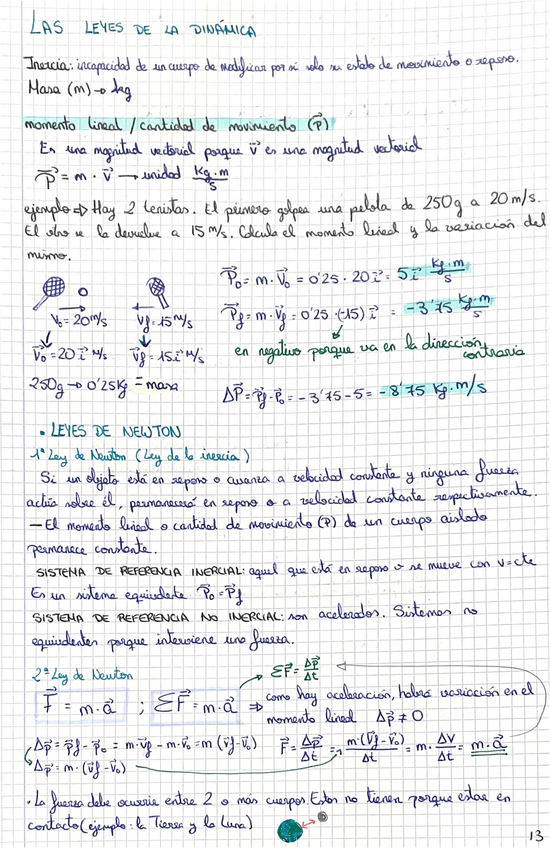 LAS LEYES DE LA DINÁMICA
Inercia: incapacidad de un cuerpo de modificar por sí solo su estado de movimiento o reposo.
Masa (m) → kg
momento lineal / cantidad de movimiento (p⃗)
Es una magnitud vectorial porque v⃗ es una magnitud vectorial
p⃗ = m · v⃗ → unidad kg·m/s
ejemplo ⇒ Hay 2 tenistas. El primero golpea una pelota de 250g a 20 m/s.
El otro se la devuelve a 15 m/s. Calcula el momento lineal y la variación del
mismo.
P⃗₀ = m · v⃗₀ = 0'25 · 20 i⃗ = 5 i⃗ kg·m/s
V₀ = 20 m/s Vf = 15 m/s
P⃗f = m · v⃗f = 0'25 · (-15) i⃗ = -3'75 kg·m/s
v⃗₀ = 20 i⃗ m/s v⃗f = 15 i⃗ m/s
en negativo porque va en la dirección contraria
250g → 0'25 kg = masa
ΔP⃗ = P⃗f - P⃗₀ = -3'75 - 5 = -8'75 kg·m/s
• LEYES DE NEWTON
1ª Ley de Newton (Ley de la inercia)
Si un objeto está en reposo o avanza a velocidad constante y ninguna fuerza
actúa sobre él, permanecerá en reposo o a velocidad constante respectivamente.
— El momento lineal o cantidad de movimiento (P) de un cuerpo aislado
permanece constante.
SISTEMA DE REFERENCIA INERCIAL: aquel que está en reposo o se mueve con v = cte
Es un sistema equivalente P⃗₀ = P⃗f
SISTEMA DE REFERENCIA NO INERCIAL: son acelerados. Sistemas no
equivalentes porque interviene una fuerza.
2ª Ley de Newton
ΣF⃗ = Δp⃗/Δt
F⃗ = m · a⃗ ; ΣF⃗ = m · a⃗ ⇒ como hay aceleración, habrá variación en el
momento lineal Δp⃗ ≠ 0
Δp⃗ = p⃗f - p⃗₀ = m · v⃗f - m · v⃗₀ = m (v⃗f - v⃗₀)
F⃗ = Δp⃗/Δt = m · (v⃗f - v⃗₀)/Δt = m · Δv/Δt = m · a⃗
Δp⃗ = m · (v⃗f - v⃗₀)
• La fuerza debe ocurrir entre 2 o más cuerpos. Estos no tienen porque estar en
contacto (ejemplo: la Tierra y la Luna)
13